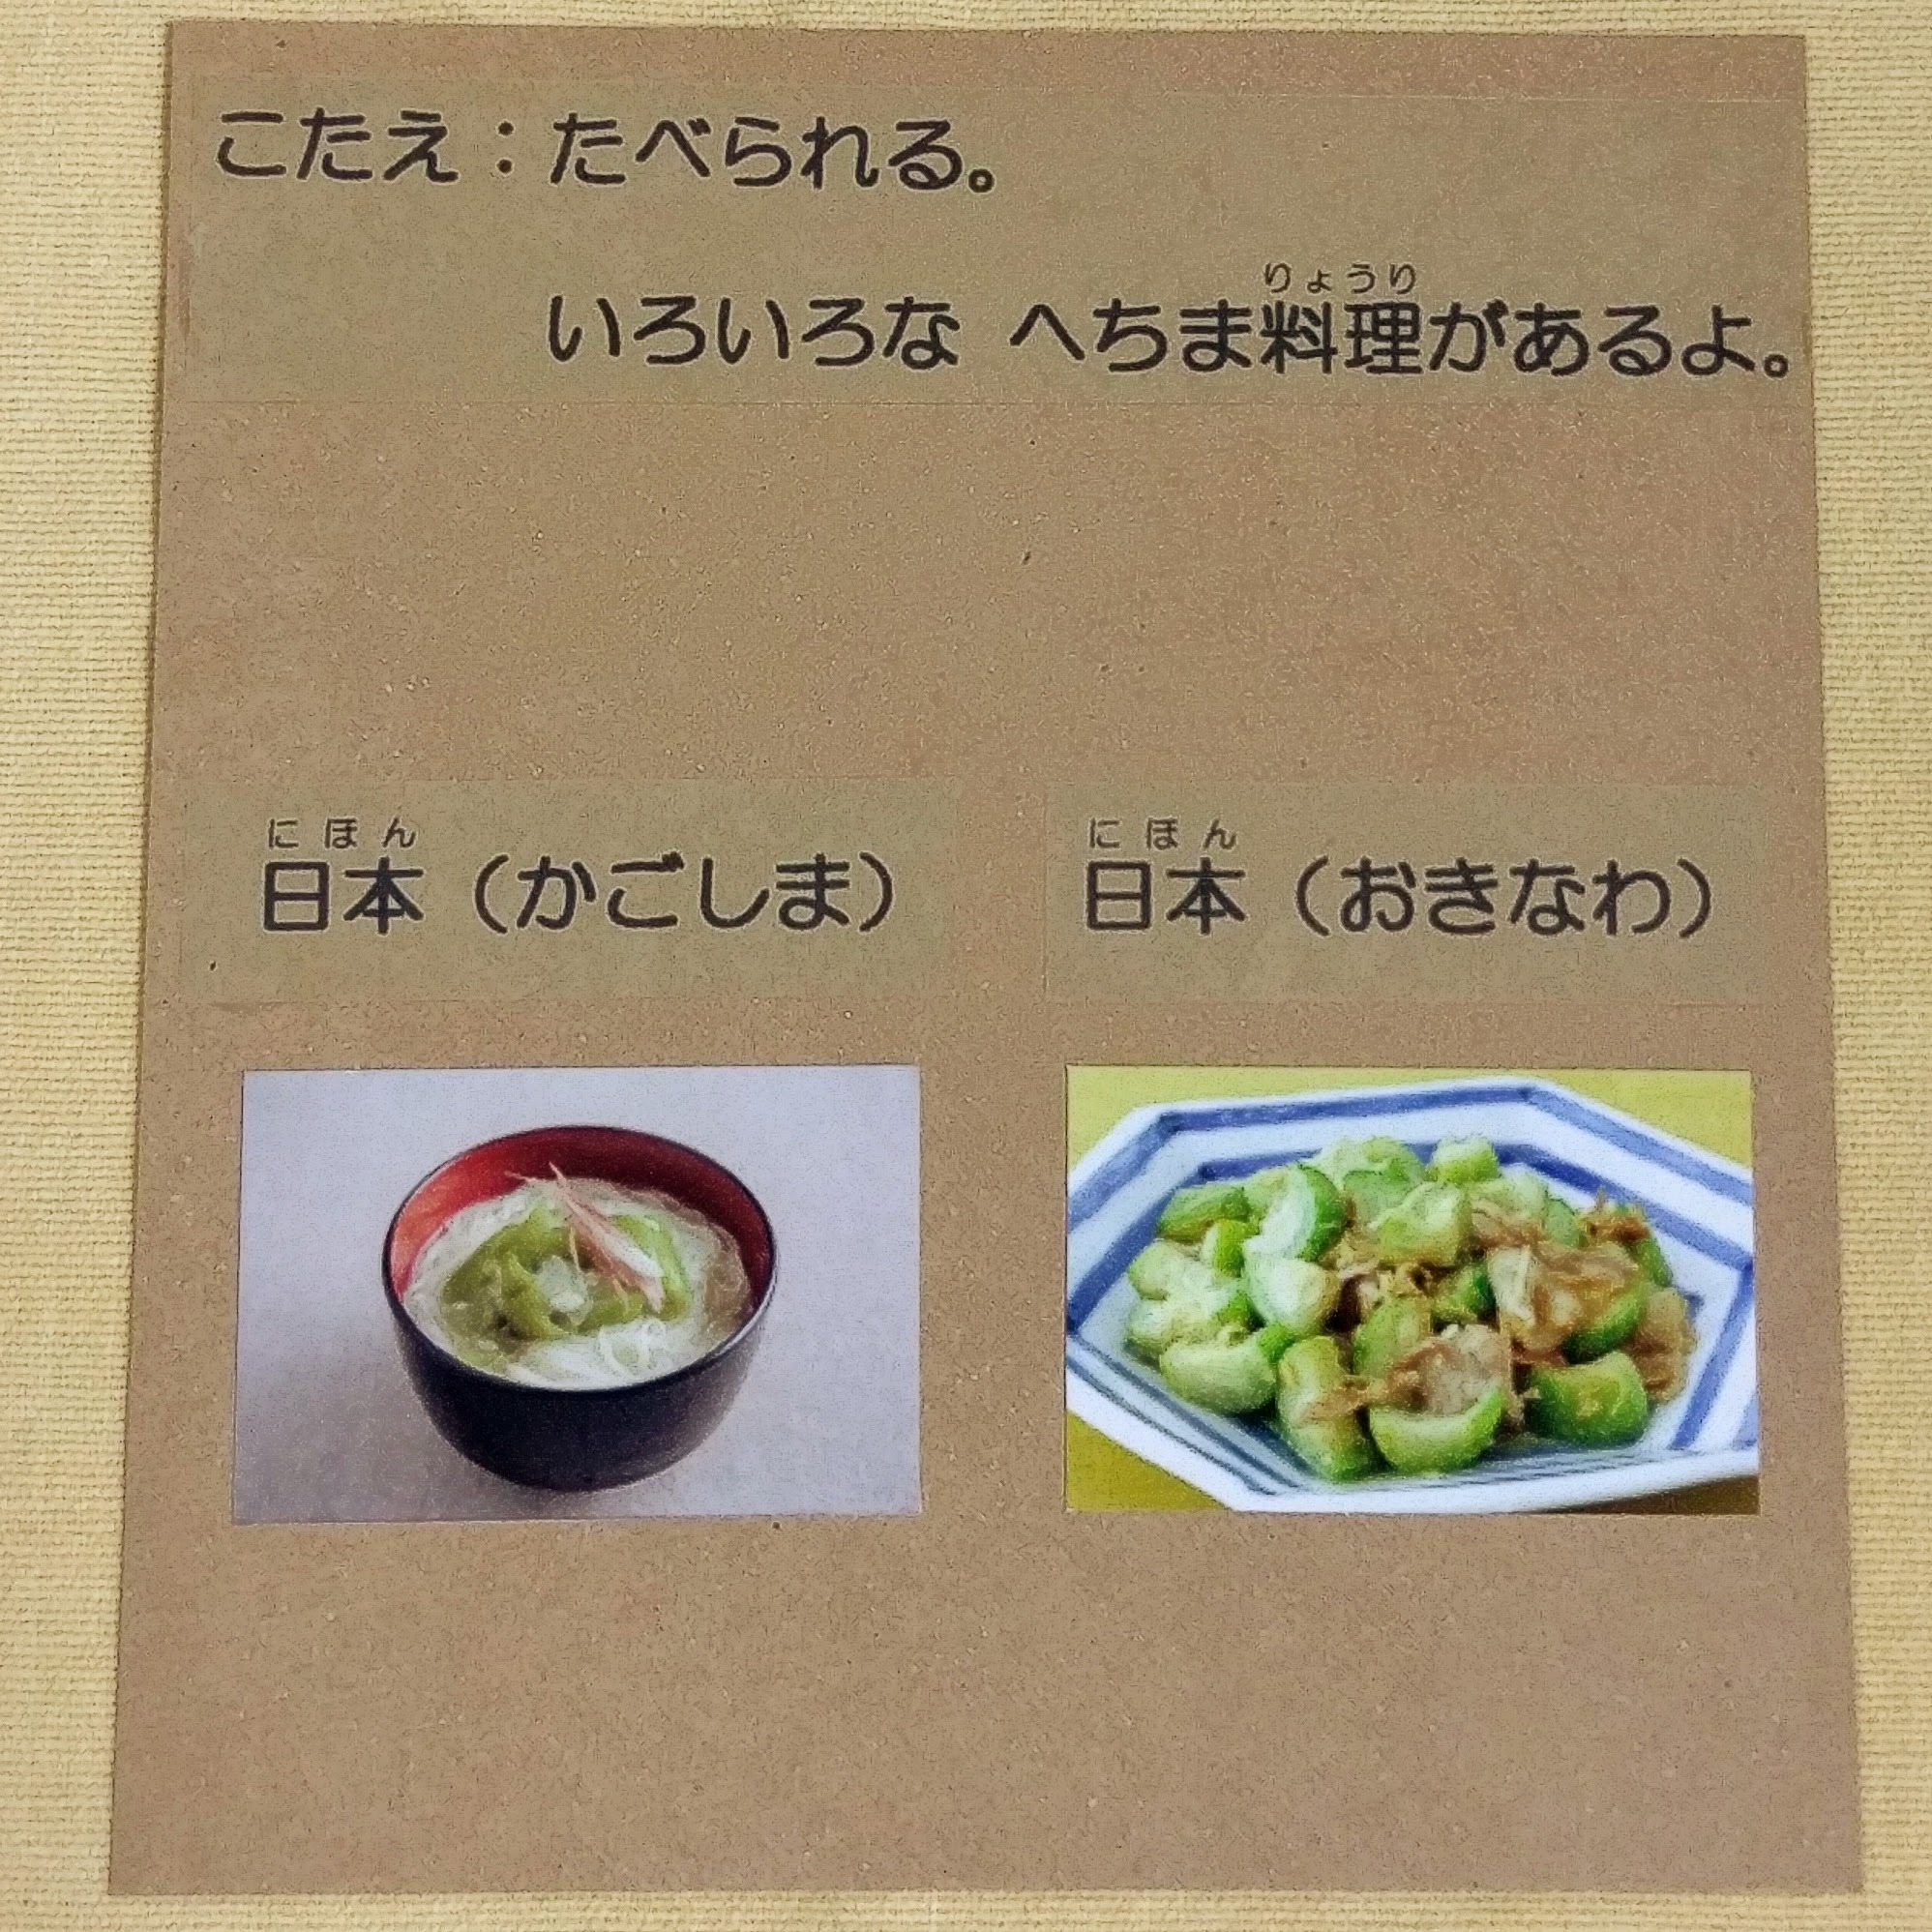 こたえ：たべられる。
いろいろな へちま料理があるよ。
りょうり
日本（かごしま）
にほん
日本（おきなわ）
にほん